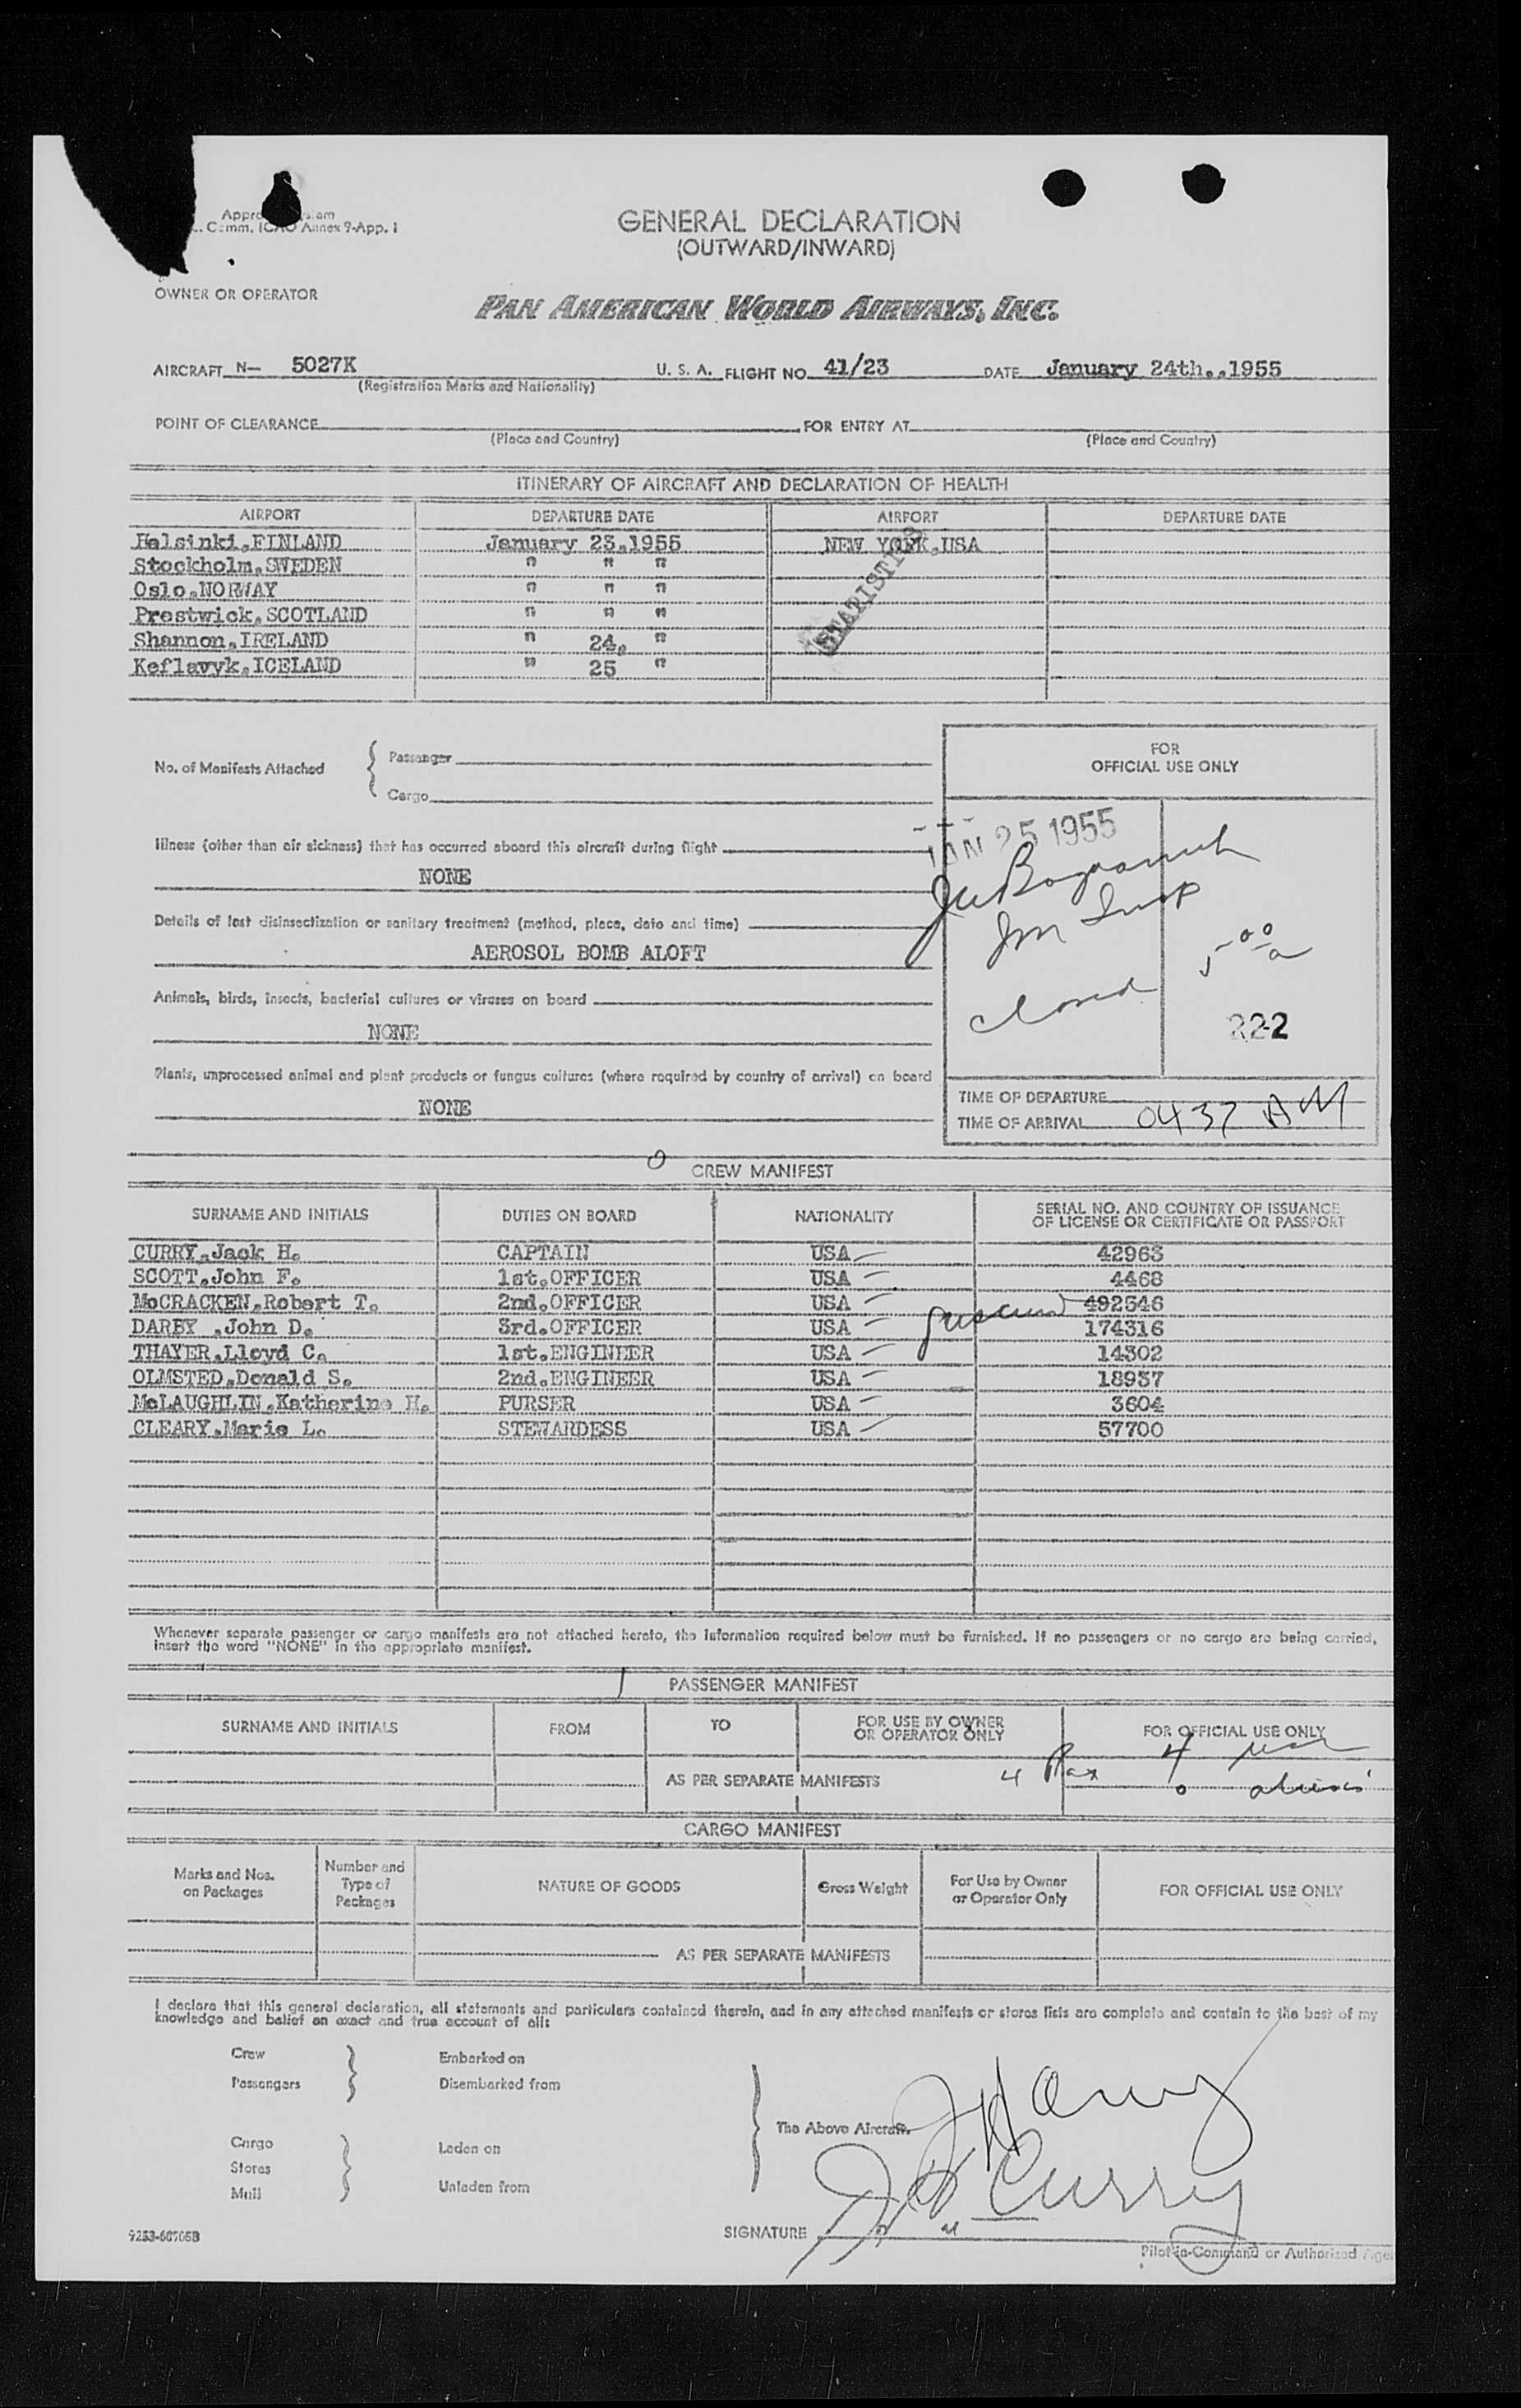 GENERAL DECLARATION
Comm. ICAO Annex 9-App. 1
(OUTWARD/INWARD)
OWNER OR OPERATOR
PAN AMERICAN WORLD AIRWAYS, INC.
AIRCRAFT N- 5027K U. S. A. FLIGHT NO. 41/23 DATE January 24th.,1955
(Registration Marks and Nationality)
POINT OF CLEARANCE FOR ENTRY AT
(Place and Country) (Place and Country)
ITINERARY OF AIRCRAFT AND DECLARATION OF HEALTH
AIRPORT DEPARTURE DATE AIRPORT DEPARTURE DATE
Helsinki,FINLAND January 23,1955 NEW YORK,USA
Stockholm,SWEDEN " " "
Oslo,NORWAY " " "
Prestwick,SCOTLAND " " "
Shannon,IRELAND " 24, "
Keflavyk,ICELAND " 25 "
STATISTICS
No. of Manifests Attached { Passenger
Cargo
FOR
OFFICIAL USE ONLY
JAN 25 1955
Illness (other than air sickness) that has occurred aboard this aircraft during flight
NONE
Imm Insp
Details of last disinsectization or sanitary treatment (method, place, date and time)
AEROSOL BOMB ALOFT
closed 5 00 a
Animals, birds, insects, bacterial cultures or viruses on board
NONE
222
Plants, unprocessed animal and plant products or fungus cultures (where required by country of arrival) on board
NONE
TIME OF DEPARTURE
TIME OF ARRIVAL 0437 AM
0 CREW MANIFEST
SURNAME AND INITIALS DUTIES ON BOARD NATIONALITY SERIAL NO. AND COUNTRY OF ISSUANCE
OF LICENSE OR CERTIFICATE OR PASSPORT
CURRY,Jack H. CAPTAIN USA 42963
SCOTT,John F. 1st.OFFICER USA 4468
McCRACKEN,Robert T. 2nd.OFFICER USA 492546
DARBY ,John D. 3rd.OFFICER USA 174316
THAYER,Lloyd C. 1st.ENGINEER USA 14302
OLMSTED,Donald S. 2nd.ENGINEER USA 18937
McLAUGHLIN,Katherine H. PURSER USA 3604
CLEARY,Marie L. STEWARDESS USA 57700
Whenever separate passenger or cargo manifests are not attached hereto, the information required below must be furnished. If no passengers or no cargo are being carried,
insert the word "NONE" in the appropriate manifest.
PASSENGER MANIFEST
SURNAME AND INITIALS FROM TO FOR USE BY OWNER
OR OPERATOR ONLY FOR OFFICIAL USE ONLY
4 usa
AS PER SEPARATE MANIFESTS 4 Pax 0 aliens
CARGO MANIFEST
Marks and Nos.
on Packages Number and
Type of
Packages NATURE OF GOODS Gross Weight For Use by Owner
or Operator Only FOR OFFICIAL USE ONLY
AS PER SEPARATE MANIFESTS
I declare that this general declaration, all statements and particulars contained therein, and in any attached manifests or stores lists are complete and contain to the best of my
knowledge and belief an exact and true account of all:
Crew Embarked on
Passengers Disembarked from
The Above Aircraft.
Cargo Laden on
Stores
Mail Unladen from
JH Curry
SIGNATURE
9253-60705B
Pilot-in-Command or Authorized Agen